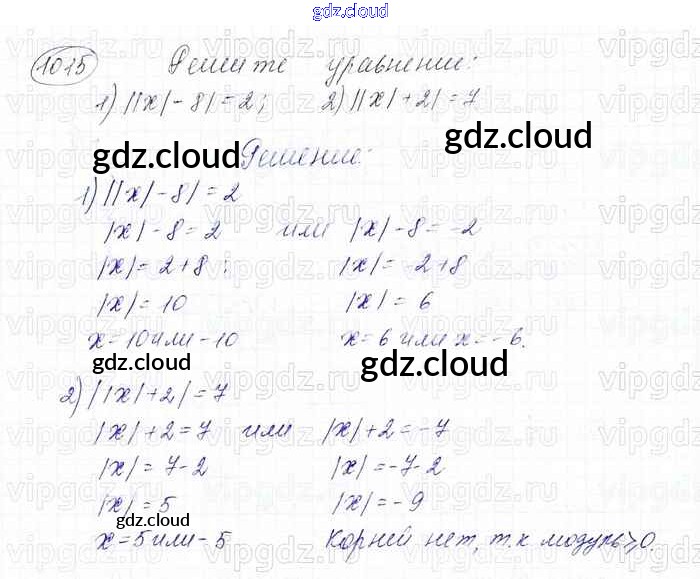 gdz.cloud
1015 Решите уравнение:
1) ||x| - 8| = 2; 2) ||x| + 2| = 7
gdz.cloud Решение: gdz.cloud
1) ||x| - 8| = 2
|x| - 8 = 2 или |x| - 8 = -2
|x| = 2 + 8; |x| = -2 + 8
|x| = 10 |x| = 6
x = 10 или - 10 x = 6 или x = - 6.
gdz.cloud gdz.cloud
2) ||x| + 2| = 7
|x| + 2 = 7 или |x| + 2 = -7
|x| = 7 - 2 |x| = -7 - 2
|x| = 5 |x| = - 9
gdz.cloud
x = 5 или - 5 Корней нет, т.к модуль ≥ 0.